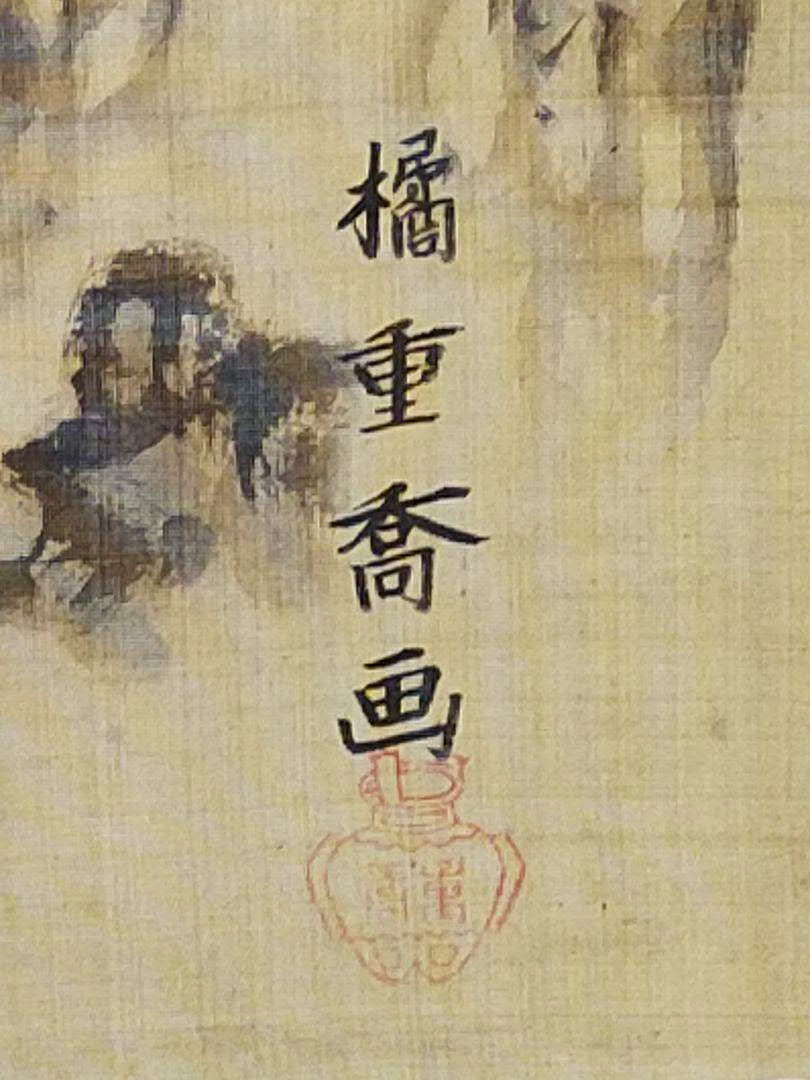 橘重喬画